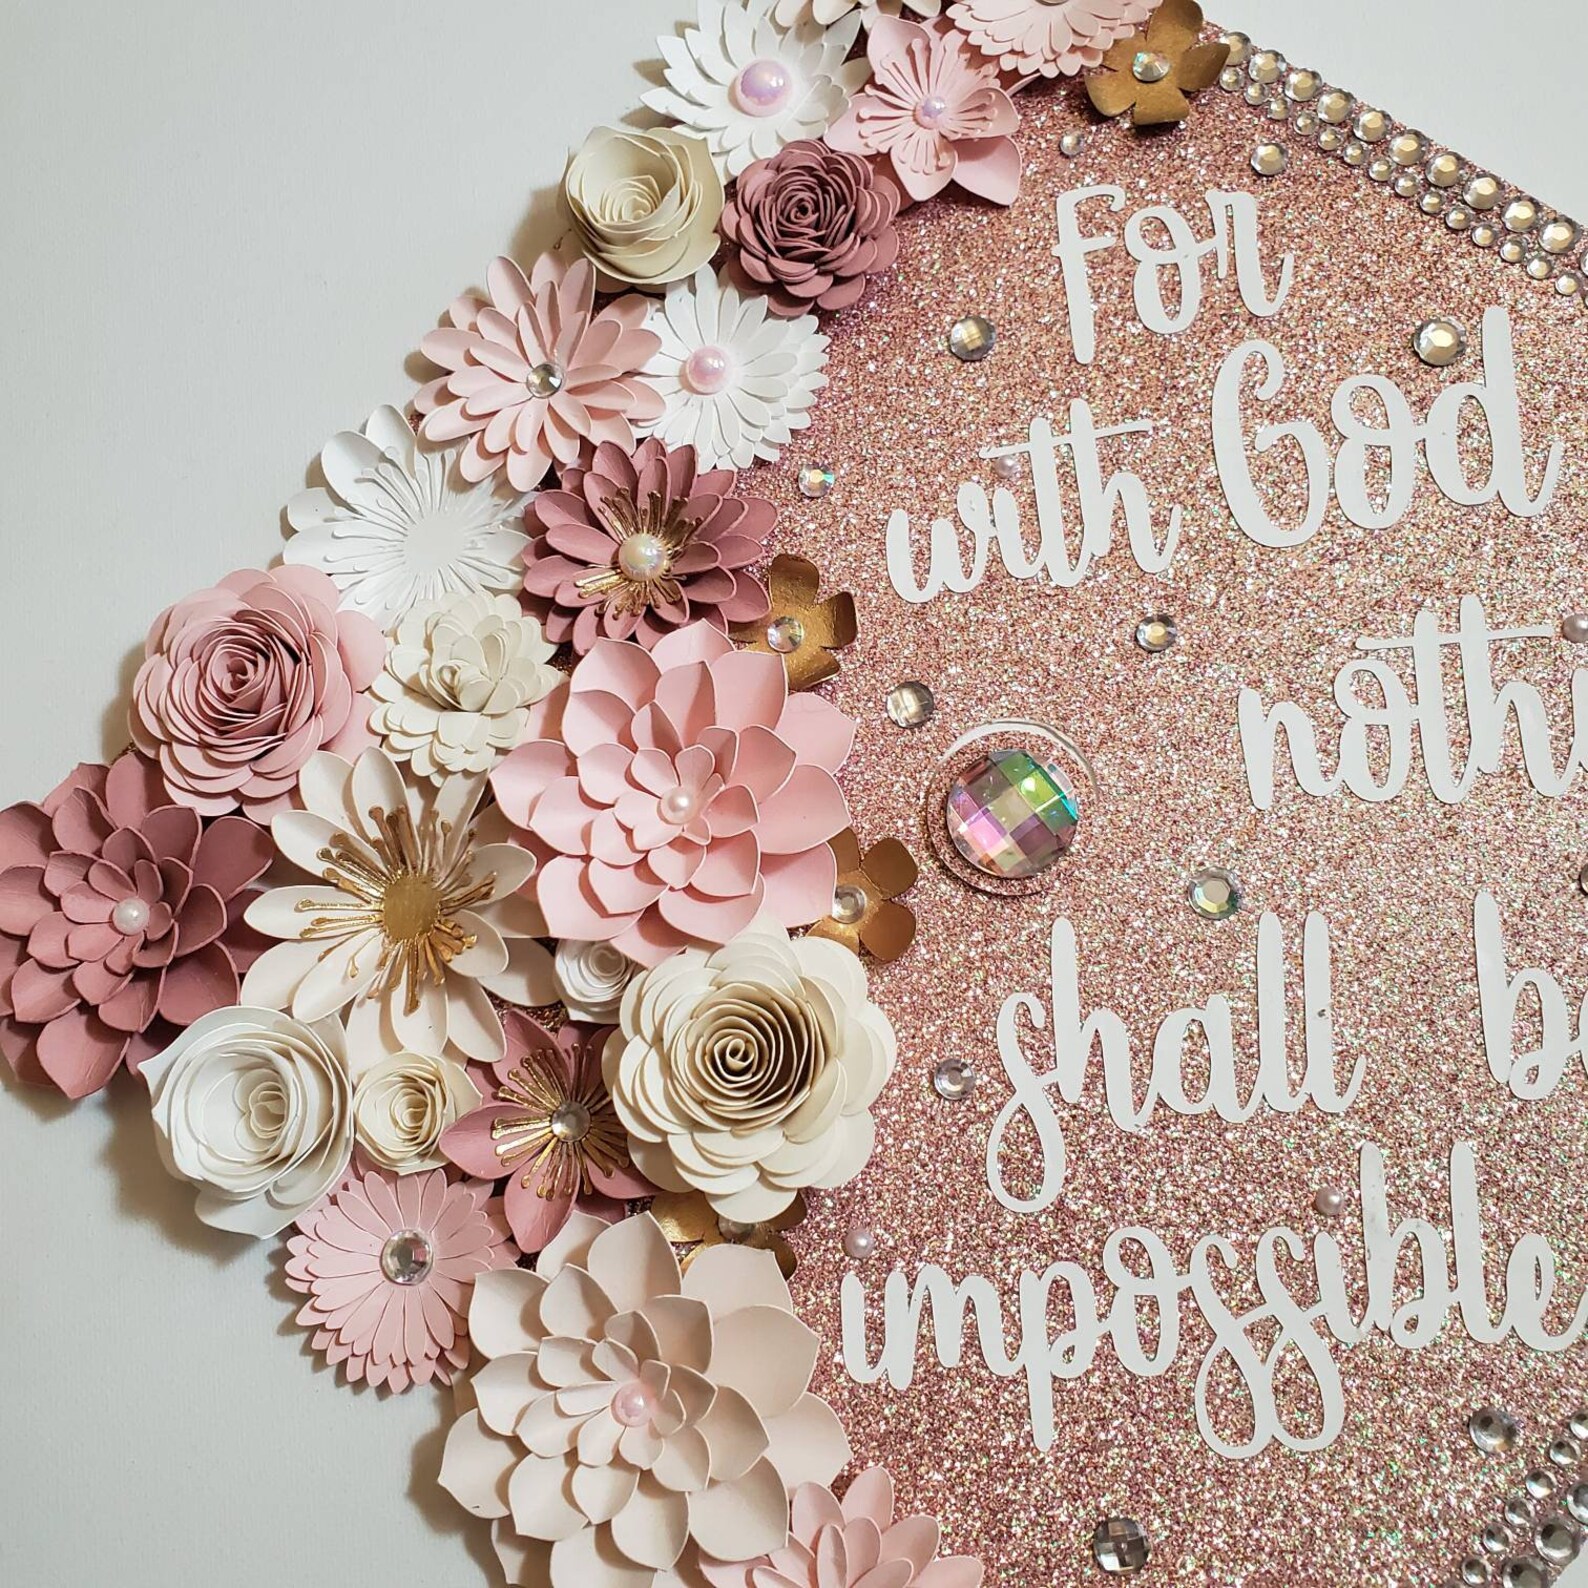 For
with God
nothi
shall be
impossible